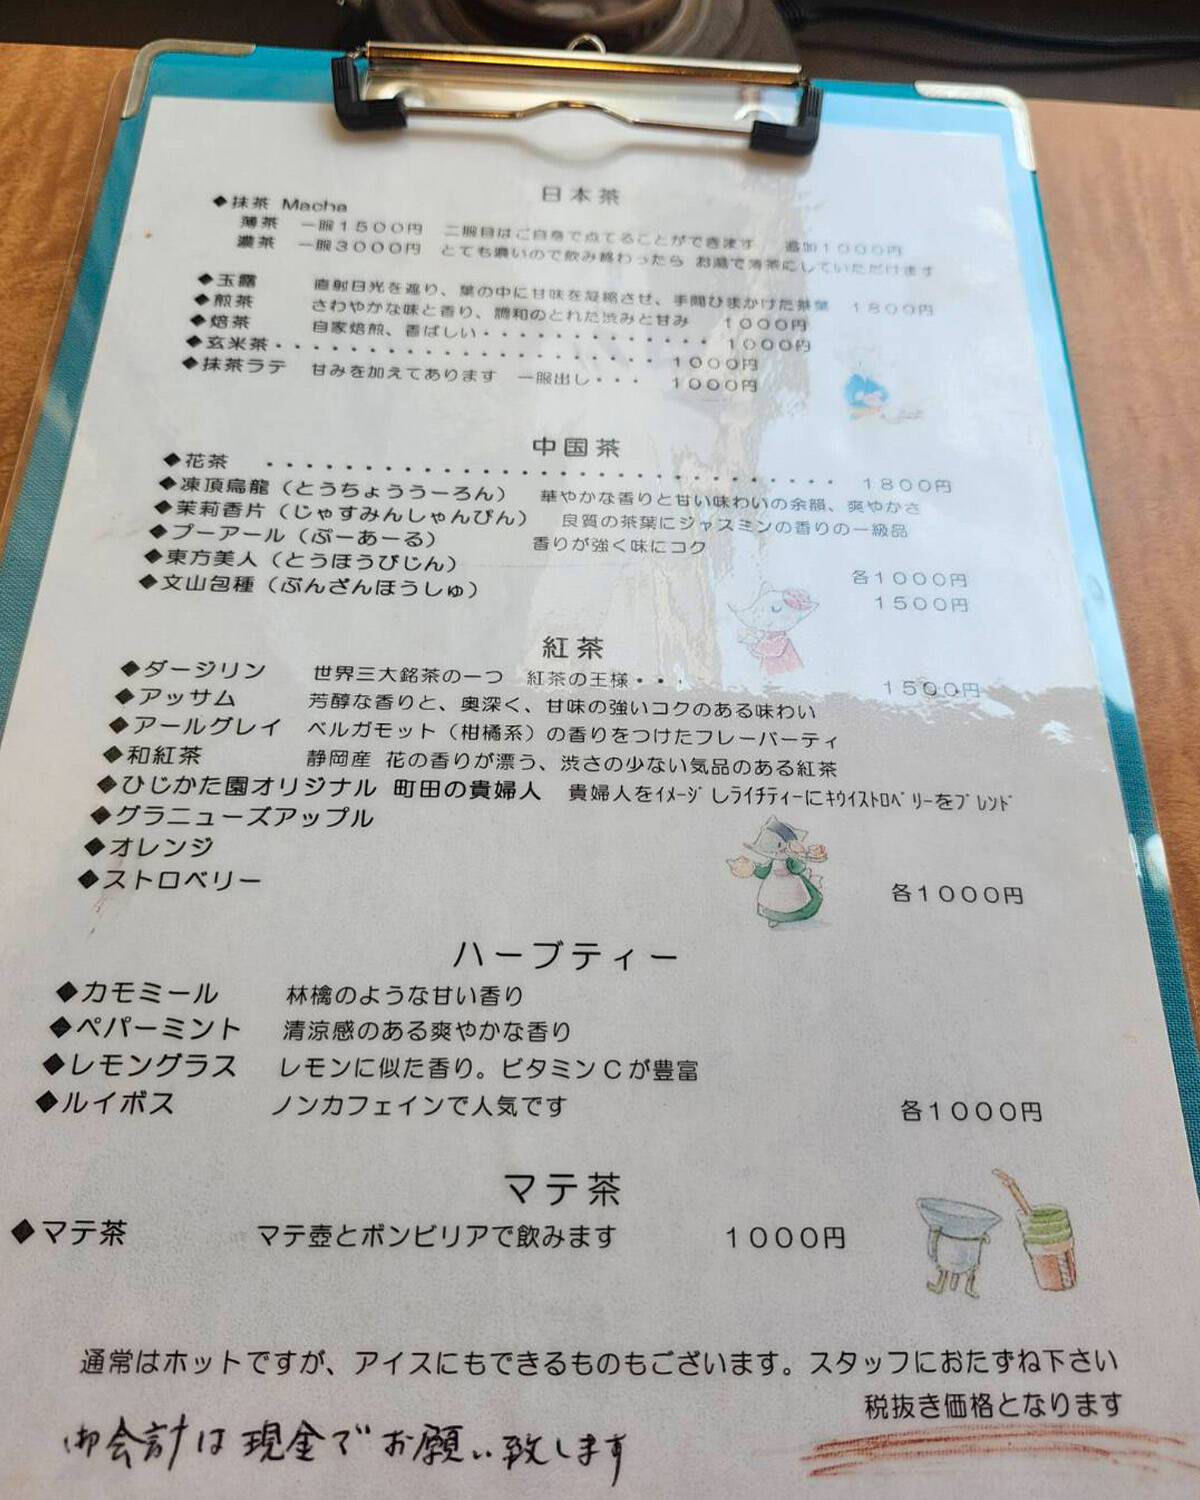 日本茶
◆抹茶 Macha
薄茶 一服1500円 二服目はご自身で点てることができます 追加1000円
濃茶 一服3000円 とても濃いので飲み終わったら お湯で薄茶にしていただけます
◆玉露 直射日光を遮り、葉の中に甘味を凝縮させ、手間ひまかけた茶葉 1800円
◆煎茶 さわやかな味と香り、調和のとれた渋みと甘み 1000円
◆焙茶 自家焙煎、香ばしい・・・・・・・・・・・・・ 1000円
◆玄米茶・・・・・・・・・・・・・・・・・・・・・・ 1000円
◆抹茶ラテ 甘みを加えてあります 一服出し・・・ 1000円
中国茶
◆花茶 ・・・・・・・・・・・・・・・・・・・・・・・・・・・・ 1800円
◆凍頂烏龍（とうちょううーろん） 華やかな香りと甘い味わいの余韻、爽やかさ
◆茉莉香片（じゃすみんしゃんぴん） 良質の茶葉にジャスミンの香りの一級品
◆プーアール（ぷーあーる） 香りが強く味にコク
◆東方美人（とうほうびじん） 各1000円
◆文山包種（ぶんざんほうしゅ） 1500円
紅茶
◆ダージリン 世界三大銘茶の一つ 紅茶の王様・・・ 1500円
◆アッサム 芳醇な香りと、奥深く、甘味の強いコクのある味わい
◆アールグレイ ベルガモット（柑橘系）の香りをつけたフレーバーティ
◆和紅茶 静岡産 花の香りが漂う、渋さの少ない気品のある紅茶
◆ひじかた園オリジナル 町田の貴婦人 貴婦人をｲﾒｰｼﾞしﾗｲﾁﾃｨｰにｷｳｲｽﾄﾛﾍﾞﾘｰをﾌﾞﾚﾝﾄﾞ
◆グラニューズアップル
◆オレンジ
◆ストロベリー 各1000円
ハーブティー
◆カモミール 林檎のような甘い香り
◆ペパーミント 清涼感のある爽やかな香り
◆レモングラス レモンに似た香り。ビタミンCが豊富
◆ルイボス ノンカフェインで人気です 各1000円
マテ茶
◆マテ茶 マテ壺とボンビリアで飲みます 1000円
通常はホットですが、アイスにもできるものもございます。スタッフにおたずね下さい
税抜き価格となります
御会計は現金でお願い致します